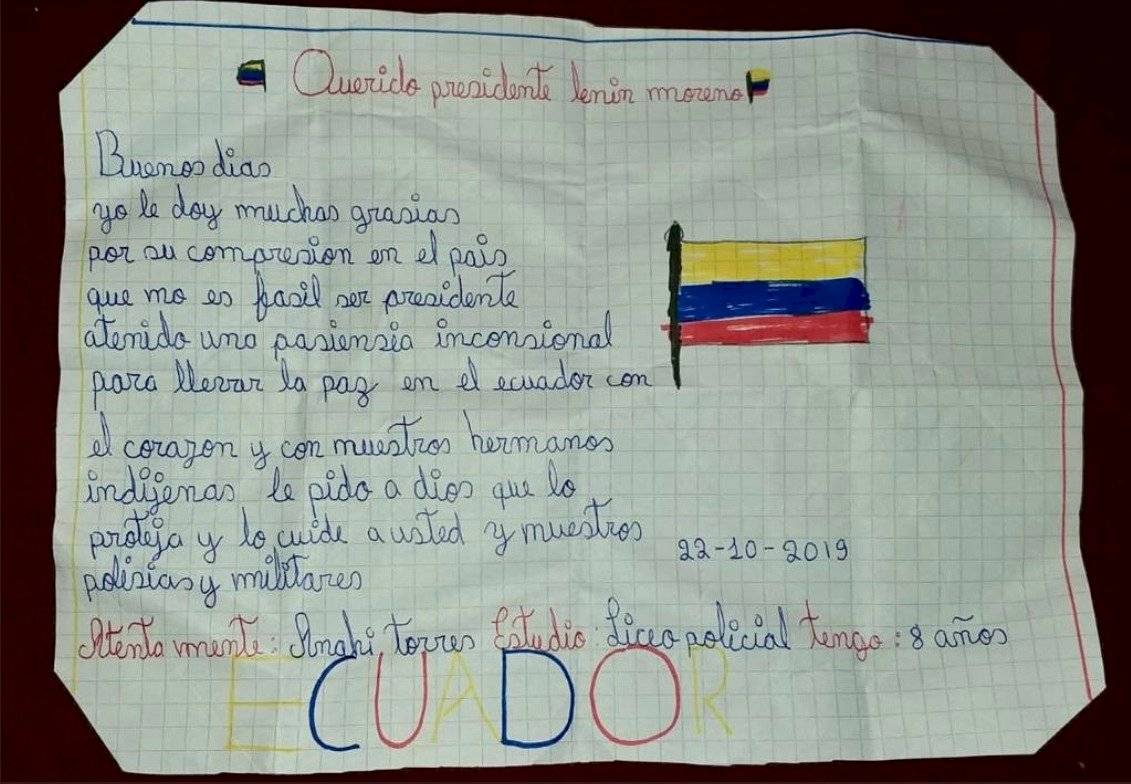 Querido presidente lenin moreno
Buenos dias
yo le doy muchas grasias
por su compresion en el pais
que mo es fasil ser presidente
atenido una pasiensia inconsional
para llevar la paz en el ecuador con
el corazon y con muestros hermanos
indijenas le pido a dios que lo
proteja y lo cuide a usted y muestros
polisias y militares
22-10-2019
Atenta mente: Anahi torres Estudio: Liceo policial tengo: 8 años
ECUADOR